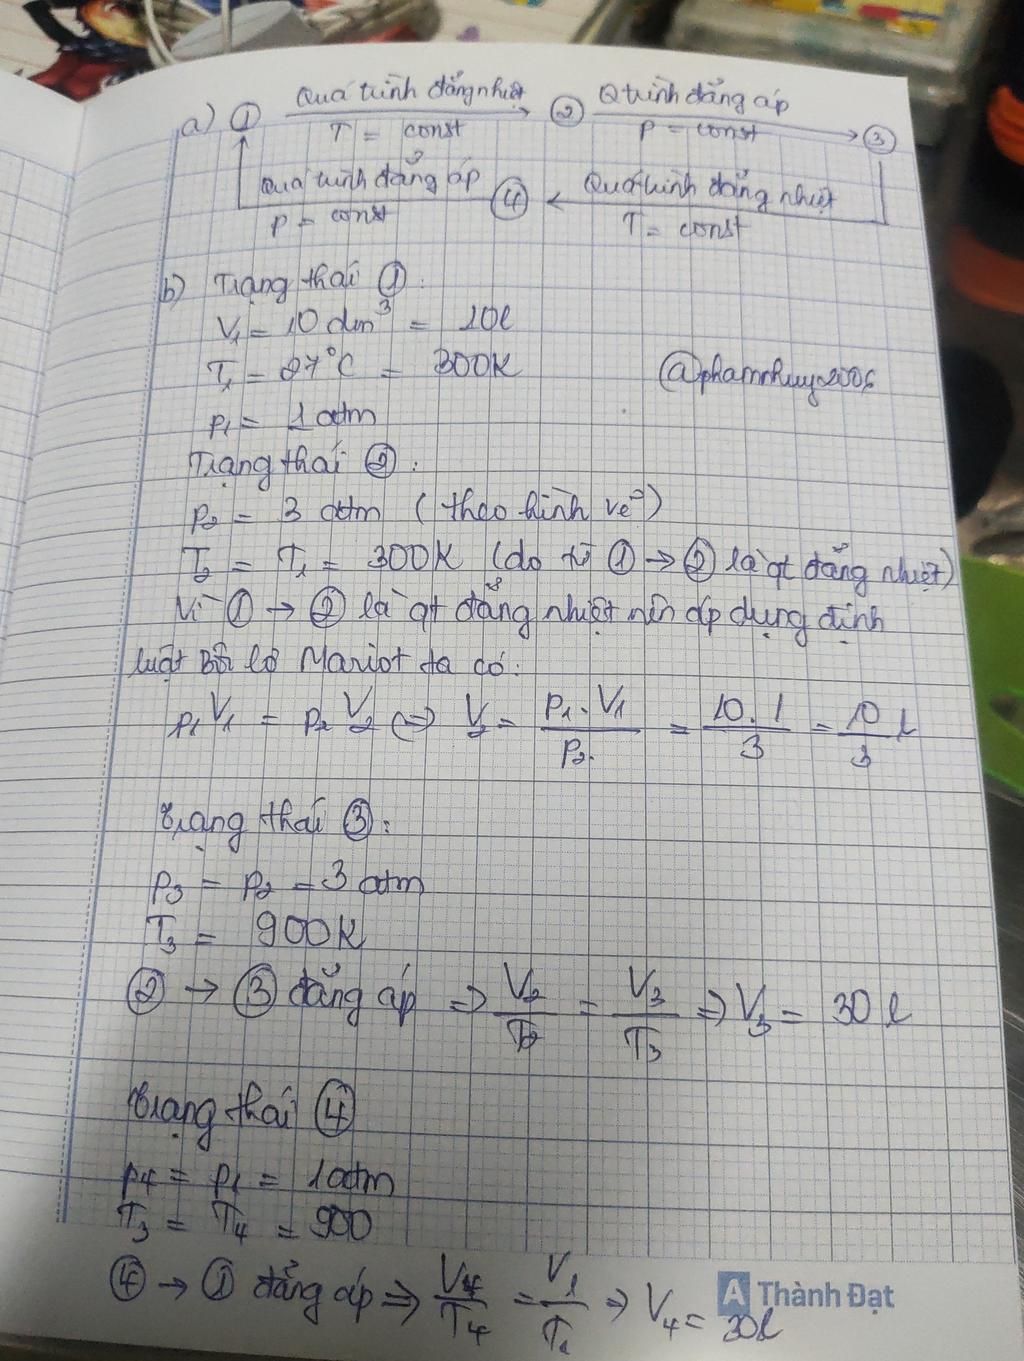 a) ① Quá trình đẳng nhiệt ② Q trình đẳng áp ③
T = const p = const
Quá trình đẳng áp ④ Quá trình đẳng nhiệt
p = const T = const
b) Trạng thái ①:
V₁ = 10 dm³ = 10l
T₁ = 27°C = 300K
@phamnhuy2006
p₁ = 1 atm
Trạng thái ②:
p₂ = 3 atm (theo hình vẽ)
T₂ = T₁ = 300K (do từ ① → ② là qt đẳng nhiệt)
Vì ① → ② là qt đẳng nhiệt nên áp dụng định
luật Bôi lơ Mariot ta có:
p₁V₁ = p₂V₂ ⇔ V₂ = p₁.V₁/p₂. = 10.1/3 = 10/3 l
Trạng thái ③:
p₃ = p₂ = 3 atm
T₃ = 900K
② → ③ đẳng áp ⇒ V₂/T₂ = V₃/T₃ ⇒ V₃ = 30 l
Trạng thái ④
p₄ = p₁ = 1 atm
T₃ = T₄ = 900
④ → ① đẳng áp ⇒ V₄/T₄ = V₁/T₁ ⇒ V₄ = 30l
A Thành Đạt